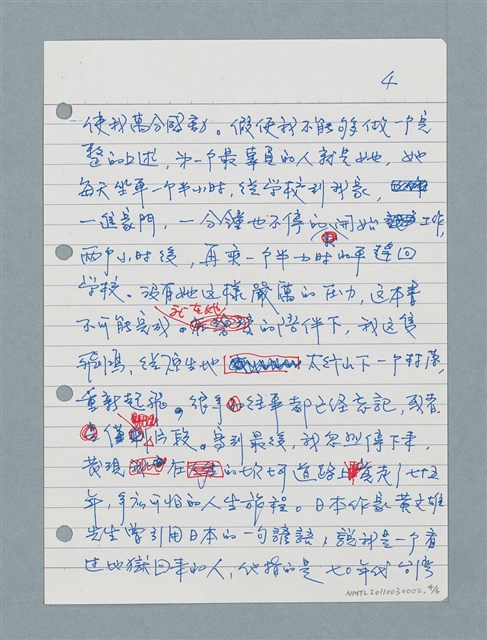 4
使我萬分感動。假使我不能够做一个完
整的口述，第一个最辜負的人就是她，她
每天坐車一个半小时，從学校到我家，
一進家門，一分鐘也不停的開始工作，
两个小时後，再乘一个半小时的車返回
学校。没有她这樣嚴厲的压力，这本書
不可能完成。我在她的陪伴下，我这隻
飛鴻，從原生地太行山下一个村落，
重新起飛。很多往事都已经忘記，或者
僅片段。寫到最後，我忽然停下来，
發現在的坎坷道路上走了七十五
年，多么可怕的人生旅程。日本作家黄文雄
先生曾引用日本的一句諺語，説我是一个看
过地獄回来的人，他指的是七〇年代台湾
NMTL20110030002, 4/6